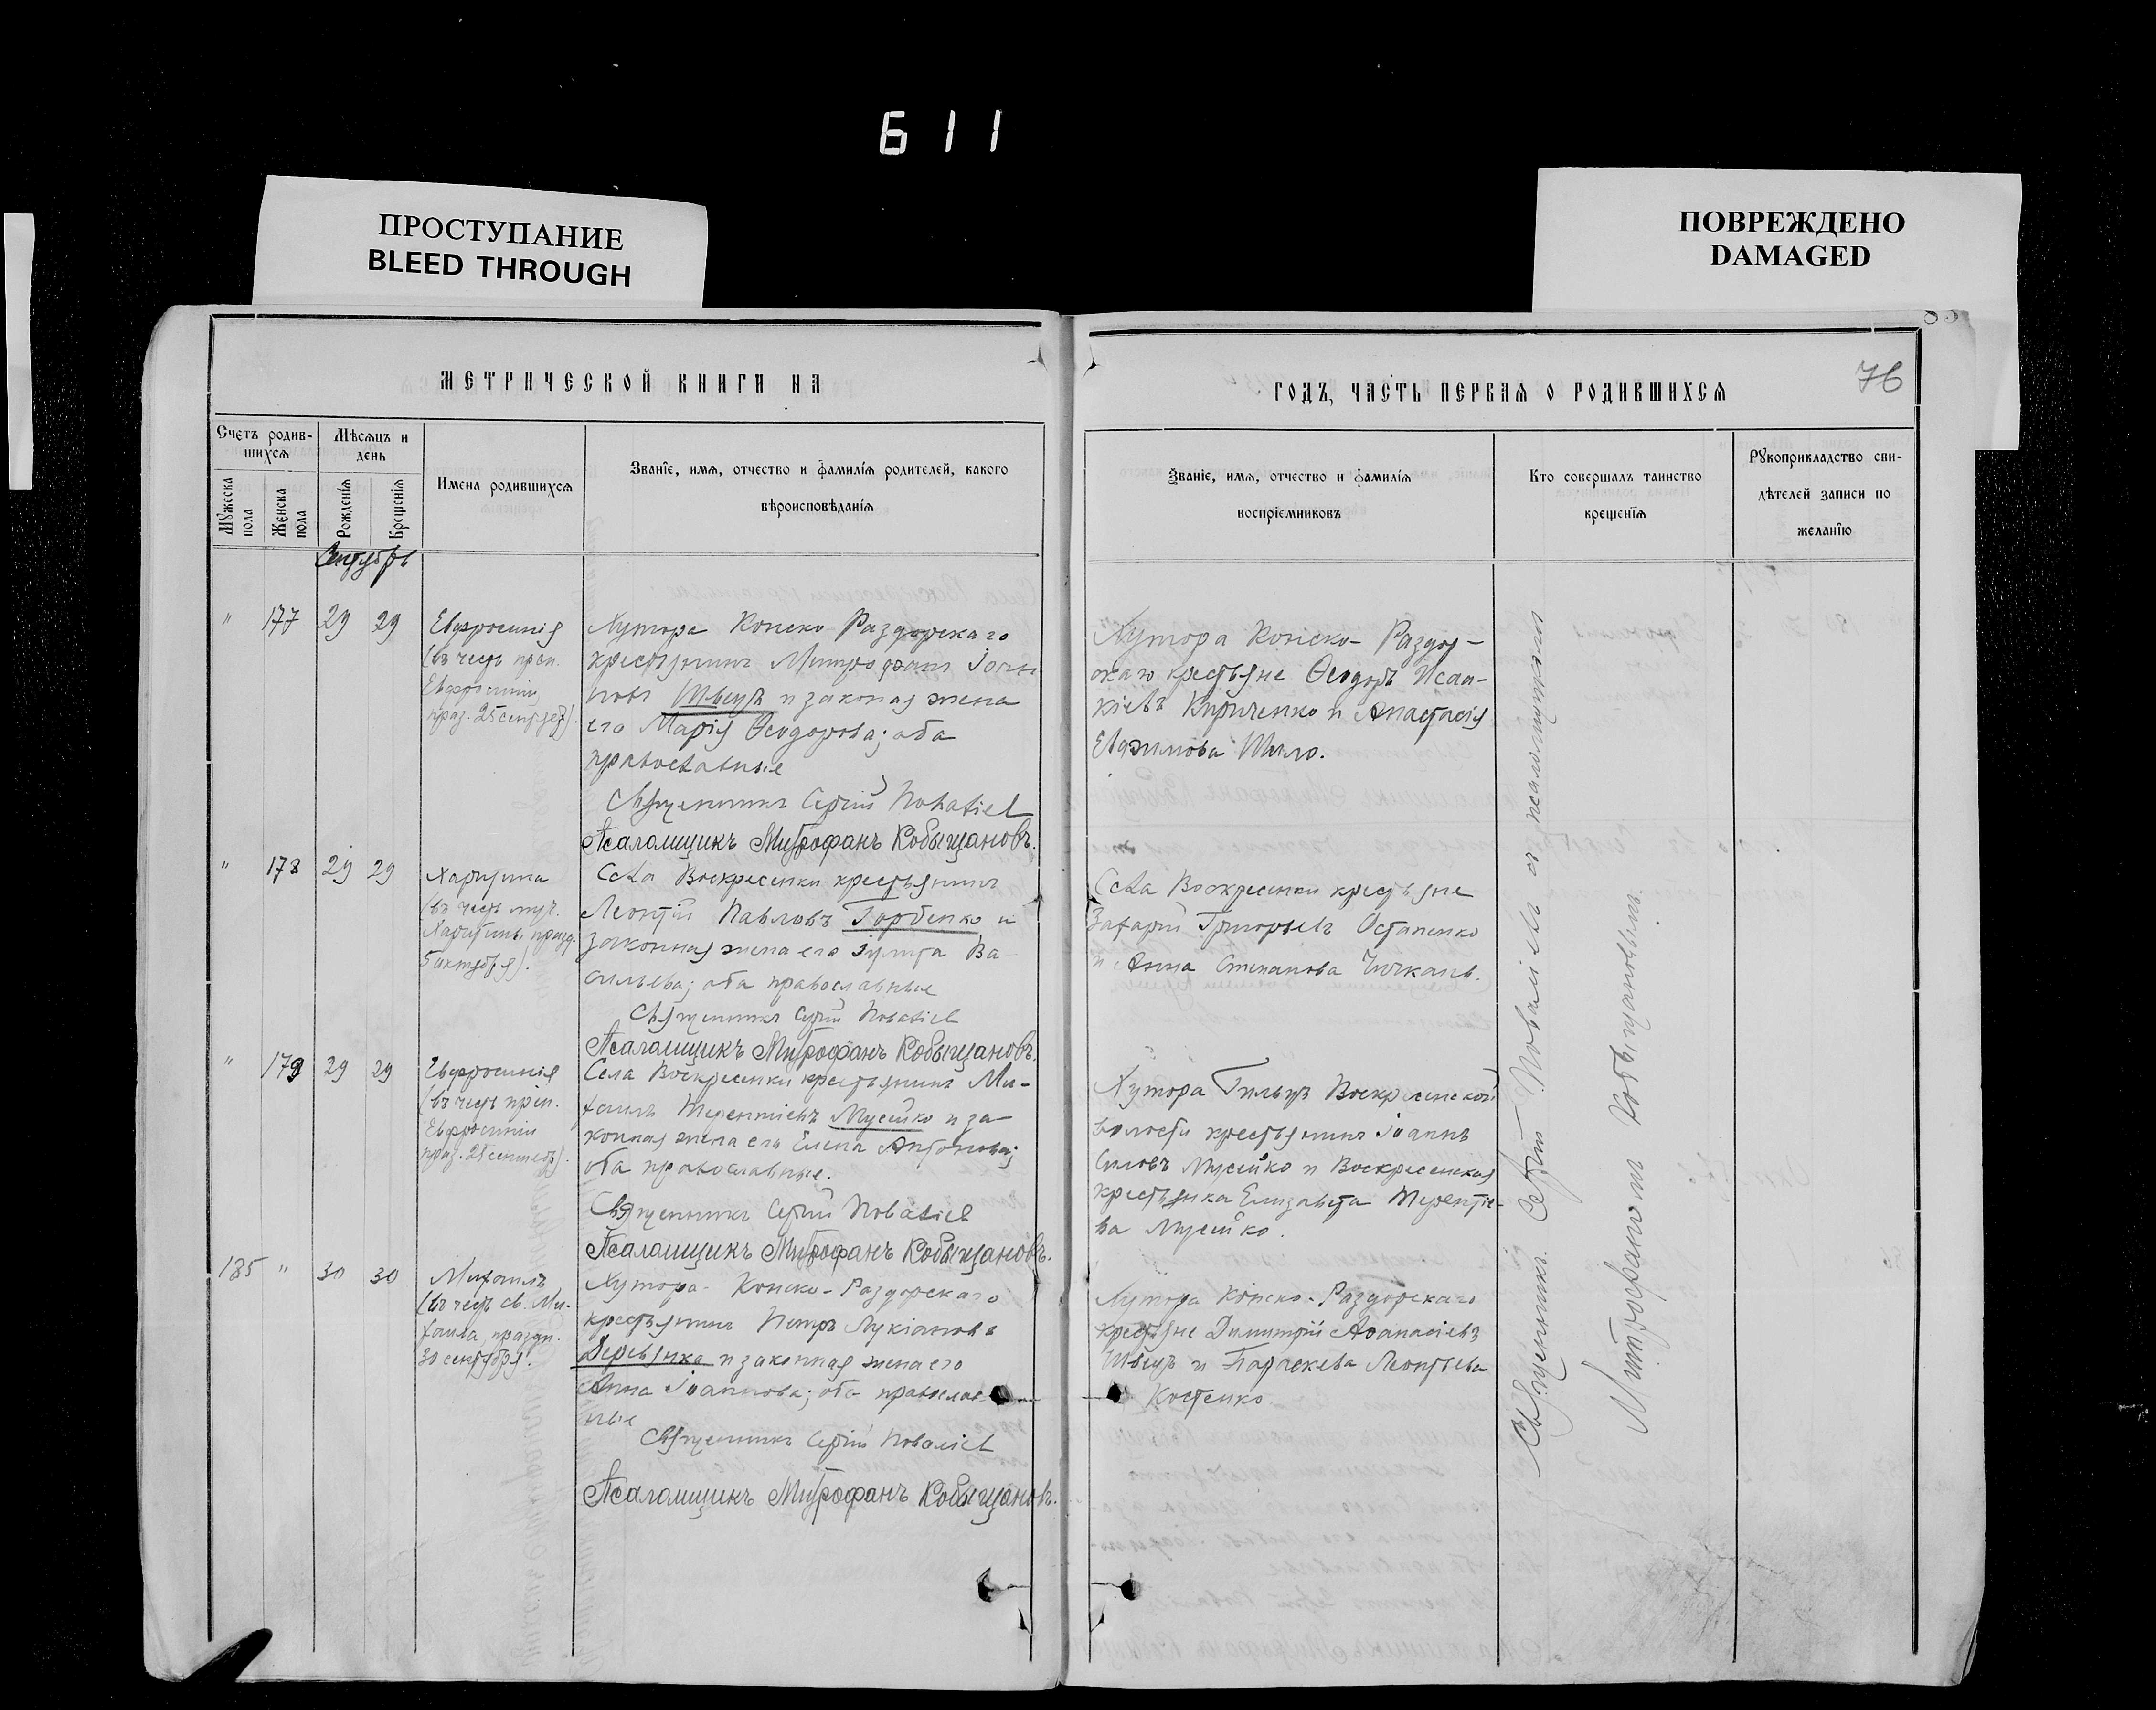 611
ПРОСТУПАНИЕ
BLEED THROUGH
ПОВРЕЖДЕНО
DAMAGED
МЕТРИЧЕСКОЙ КНИГИ НА
ГОДЪ, ЧАСТЬ ПЕРВАЯ О РОДИВШИХСЯ
76
Счетъ родив-
шихся
Мужеска
пола
Женска
пола
Мѣсяцъ и
день
Рожденія
Крещенія
Имена родившихся
Званіе, имя, отчество и фамилія родителей, какого
вѣроисповѣданія
Званіе, имя, отчество и фамилія
воспріемниковъ
Кто совершалъ таинство
крещенія
Рукоприкладство сви-
дѣтелей записи по
желанію
Сентябрь
" 177 29 29
Евфросинія
(въ честь преп.
Евфросиніи,
праз. 25 сентября).
Хутора Конско-Раздорскаго
крестьянинъ Митрофанъ Іоан
новъ Швецъ и законая жена
его Марія Ѳеодорова; оба
православные
Священникъ Сергій Поваліев
Псаломщикъ Митрофанъ Кобыщановъ.
Хутора Конско-Раздор-
скаго крестьяне Ѳеодоръ Исаа-
кіевъ Кириченко и Анастасія
Евфимова Шило.
" 178 29 29
Харитина
(въ честь муч.
Харитины, празд.
5 октября).
Села Воскресенки крестьянинъ
Леонтій Павловъ Горбенко и
законная жена его Іулита Ва
сильева; оба православные
Священникъ Сергій Поваліев
Псаломщикъ Митрофанъ Кобыщановъ.
Села Воскресенки крестьяне
Захарій Григорьевъ Остапенко
и Анна Степанова
" 179 29 29
Евфросинія
(въ честь преп.
Евфросиніи
праз. 25 сентяб).
Села Воскресенки крестьянинъ Ми-
хаилъ Терентіевъ Мусійко и за
конная жена его Елена Антонова;
оба православные.
Священникъ Сергій Поваліев
Псаломщикъ Митрофанъ Кобыщановъ.
Хутора Воскресенской
волости крестьянинъ Іоаннъ
Силовъ Мусійко и Воскресенская
крестьянка Елизавета Терентіе-
ва Мусійко.
185 " 30 30
Михаилъ
(въ честь св. Ми-
хаила, праздн.
30 сентября.
Хутора Конско-Раздорскаго
крестьянинъ Петръ Лукіановъ
Деревянко и законная жена его
Анна Іоаннова; оба православ-
ные
Священникъ Сергій Поваліев
Псаломщикъ Митрофанъ Кобыщановъ.
Хутора Конско-Раздорскаго
крестьяне Димитрій Аѳанасіевъ
Швецъ и Параскева Леонтьева
Костенко
Священникъ Сергій Поваліевъ съ псаломщикомъ
Митрофаномъ Кобыщановымъ.